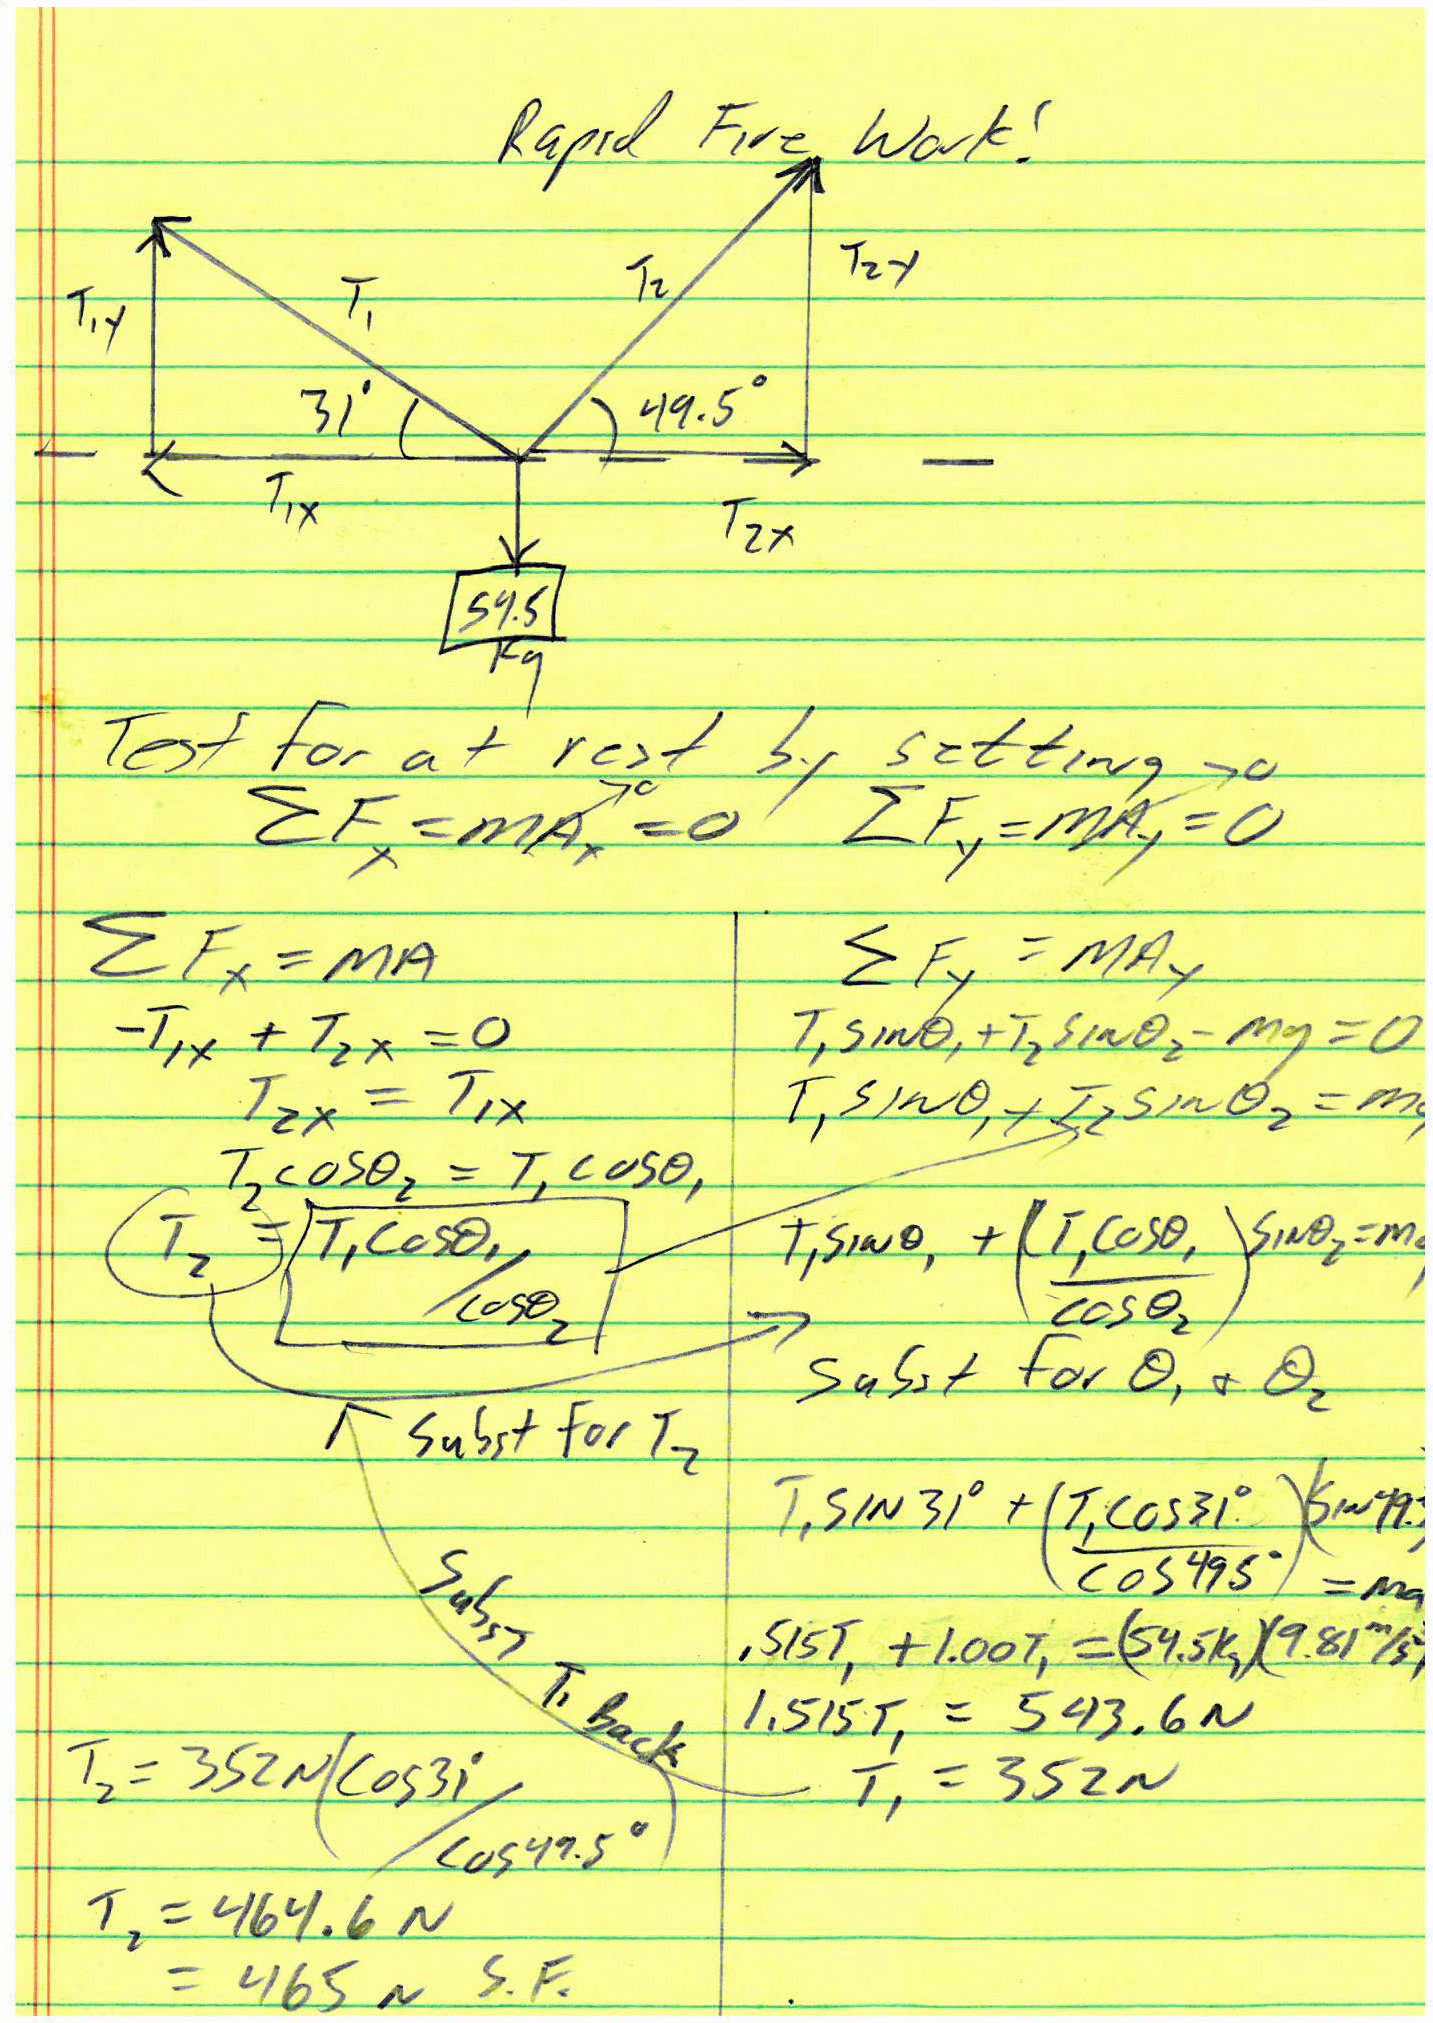 Rapid Fire Work!
T₁y
T₁
T₂
T₂y
31°
49.5°
T₁x
T₂x
54.5
Kg
Test for at rest by setting
ΣFₓ = MAₓ→0 = 0
ΣFy = MAy→0 = 0
ΣFₓ = MA
-T₁x + T₂x = 0
T₂x = T₁x
T₂cosθ₂ = T₁cosθ₁
T₂ = T₁cosθ₁/cosθ₂
Subst for T₂
Subst T₁ Back
T₂ = 352N(cos31°/cos49.5°)
T₂ = 464.6 N
= 465 N S.F.
ΣFy = MAy
T₁sinθ₁+T₂sinθ₂-mg=0
T₁sinθ₁+T₂sinθ₂=mg
T₁sinθ₁ + (T₁cosθ₁/cosθ₂)sinθ₂=mg
Subst for θ₁ & θ₂
T₁SIN31° + (T₁cos31°/cos49.5°)(sin49.5
= mg
.515T₁ + 1.00T₁ = (54.5kg)(9.81m/s²)
1.515T₁ = 543.6N
T₁ = 352N